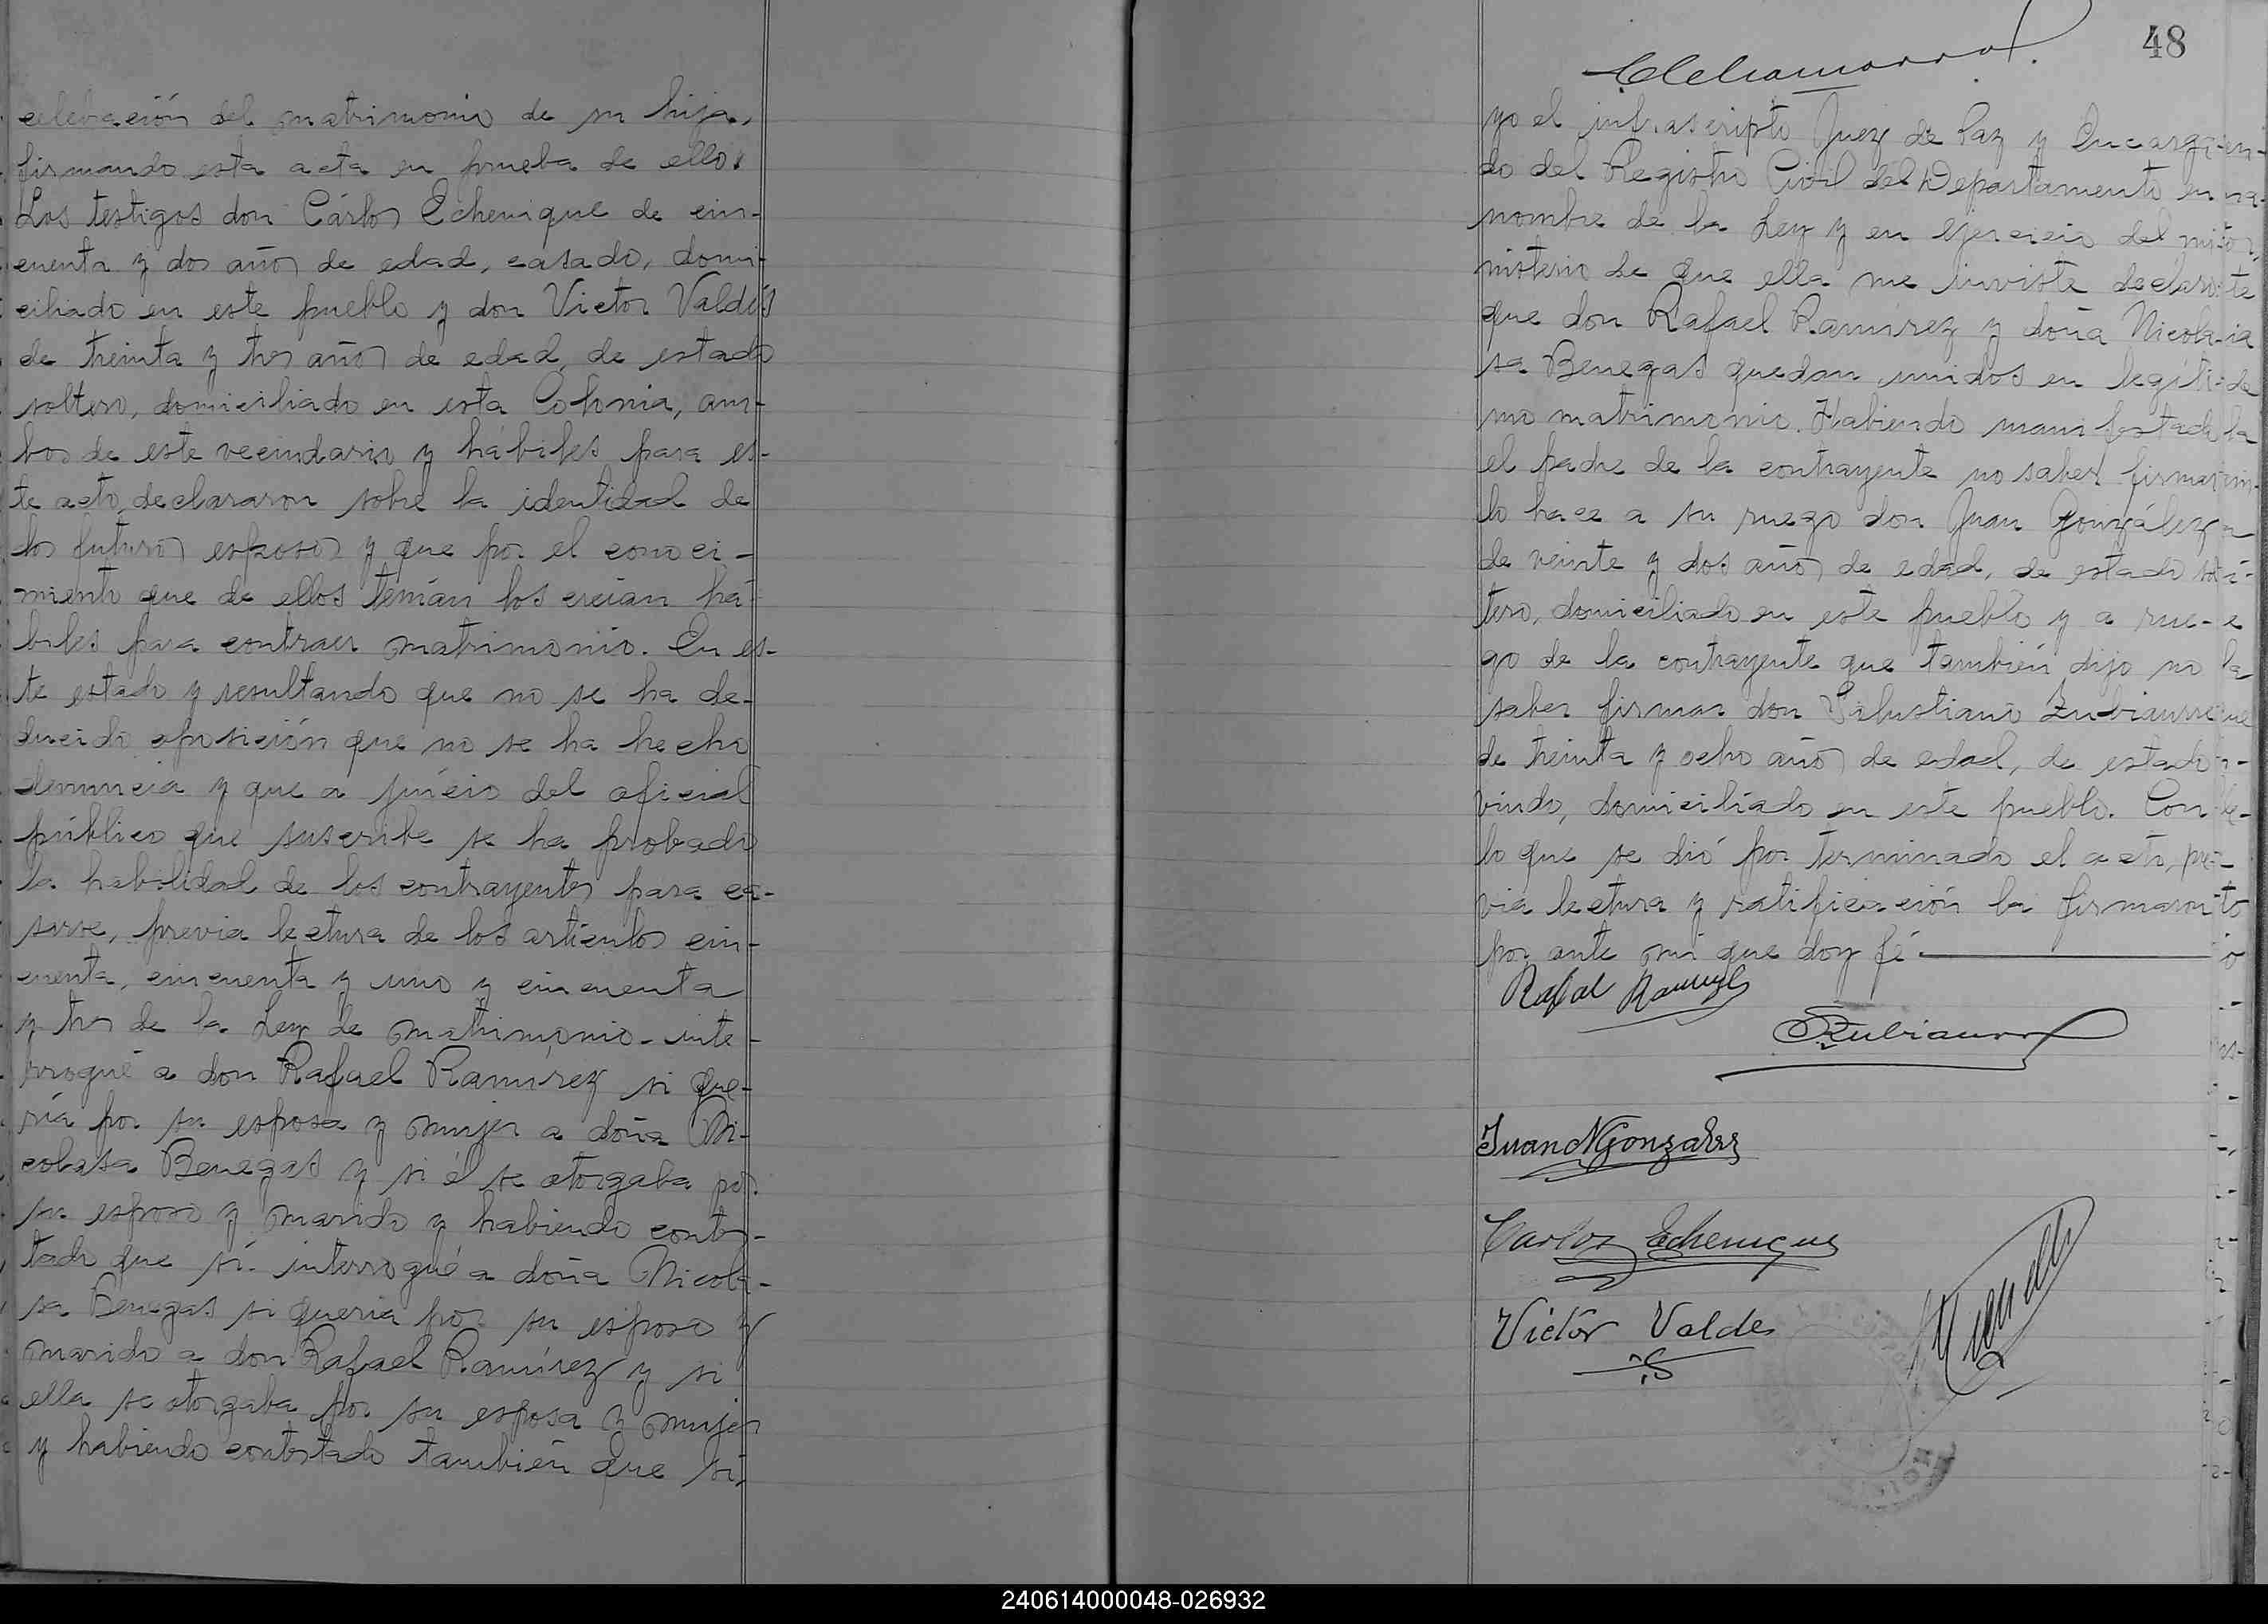 celebración del matrimonio de su hija,
firmando esta acta en prueba de ello.
Los testigos don Cárlos Echenique de cin-
cuenta y dos años de edad, casado, domi-
ciliado en este pueblo y don Victor Valdés
de treinta y tres años de edad, de estado
soltero, domiciliado en esta Colonia, am-
bos de este vecindario y hábiles para es-
te acto, declararon sobre la identidad de
los futuros esposos y que por el conoci-
miento que de ellos tenían los creían há-
biles para contraer matrimonio. En es-
te estado y resultando que no se ha de-
ducido oposición que no se ha hecho
denuncia y que a juicio del oficial
público que suscribe se ha probado
la habilidad de los contrayentes para ca-
sarse, previa lectura de los artículos cin-
cuenta, cincuenta y uno y cincuenta
y tres de la Ley de matrimonio - inte-
rrogué a don Rafael Ramírez si que-
ría por su esposa y mujer a doña Ni-
colasa Benegas y si él se otorgaba por
su esposo y marido y habiendo contes-
tado que sí - interrogué a doña Nicola-
sa Benegas si queria por su esposo y
marido a don Rafael Ramírez y si
ella se otorgaba por su esposa y mujer
y habiendo contestado también que sí,
48
yo el infrascripto Juez de Paz y Encarga-
do del Registro Civil del Departamento en
nombre de la Ley y en ejercicio del mi-
nisterio de que ella me inviste declaro
que don Rafael Ramírez y doña Nicola-
sa Benegas quedan unidos en legíti-
mo matrimonio. Habiendo manifestado
el padre de la contrayente no saber firmar
lo hace a su ruego don Juan González
de veinte y dos años de edad, de estado sol-
tero, domiciliado en este pueblo y a rue-
go de la contrayente que también dijo no
saber firmar don Salustiano Zubiaurre
de treinta y ocho años de edad, de estado
viudo, domiciliado en este pueblo. Con
lo que se dió por terminado el acto, pré-
via lectura y ratificación la firmaron
por ante mi que doy fé
Rafael Ramirez
SZubiaurre
Juan N Gonzalez
Carlos Echenique
Victor Valdes
240614000048-026932